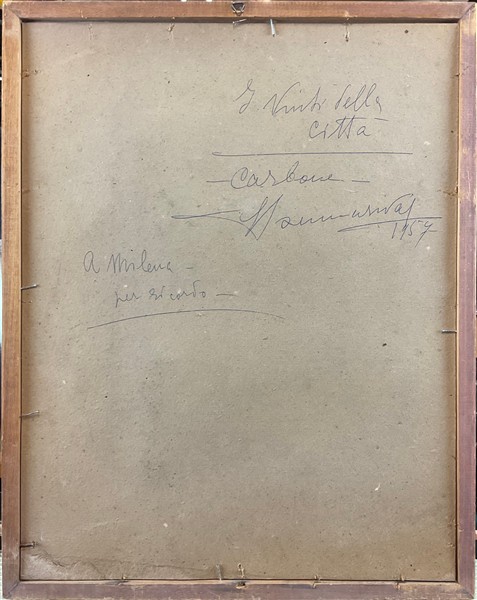 I Vinti della
città
- Carbone -
Sommariva
1957
A Milena -
per ricordo -